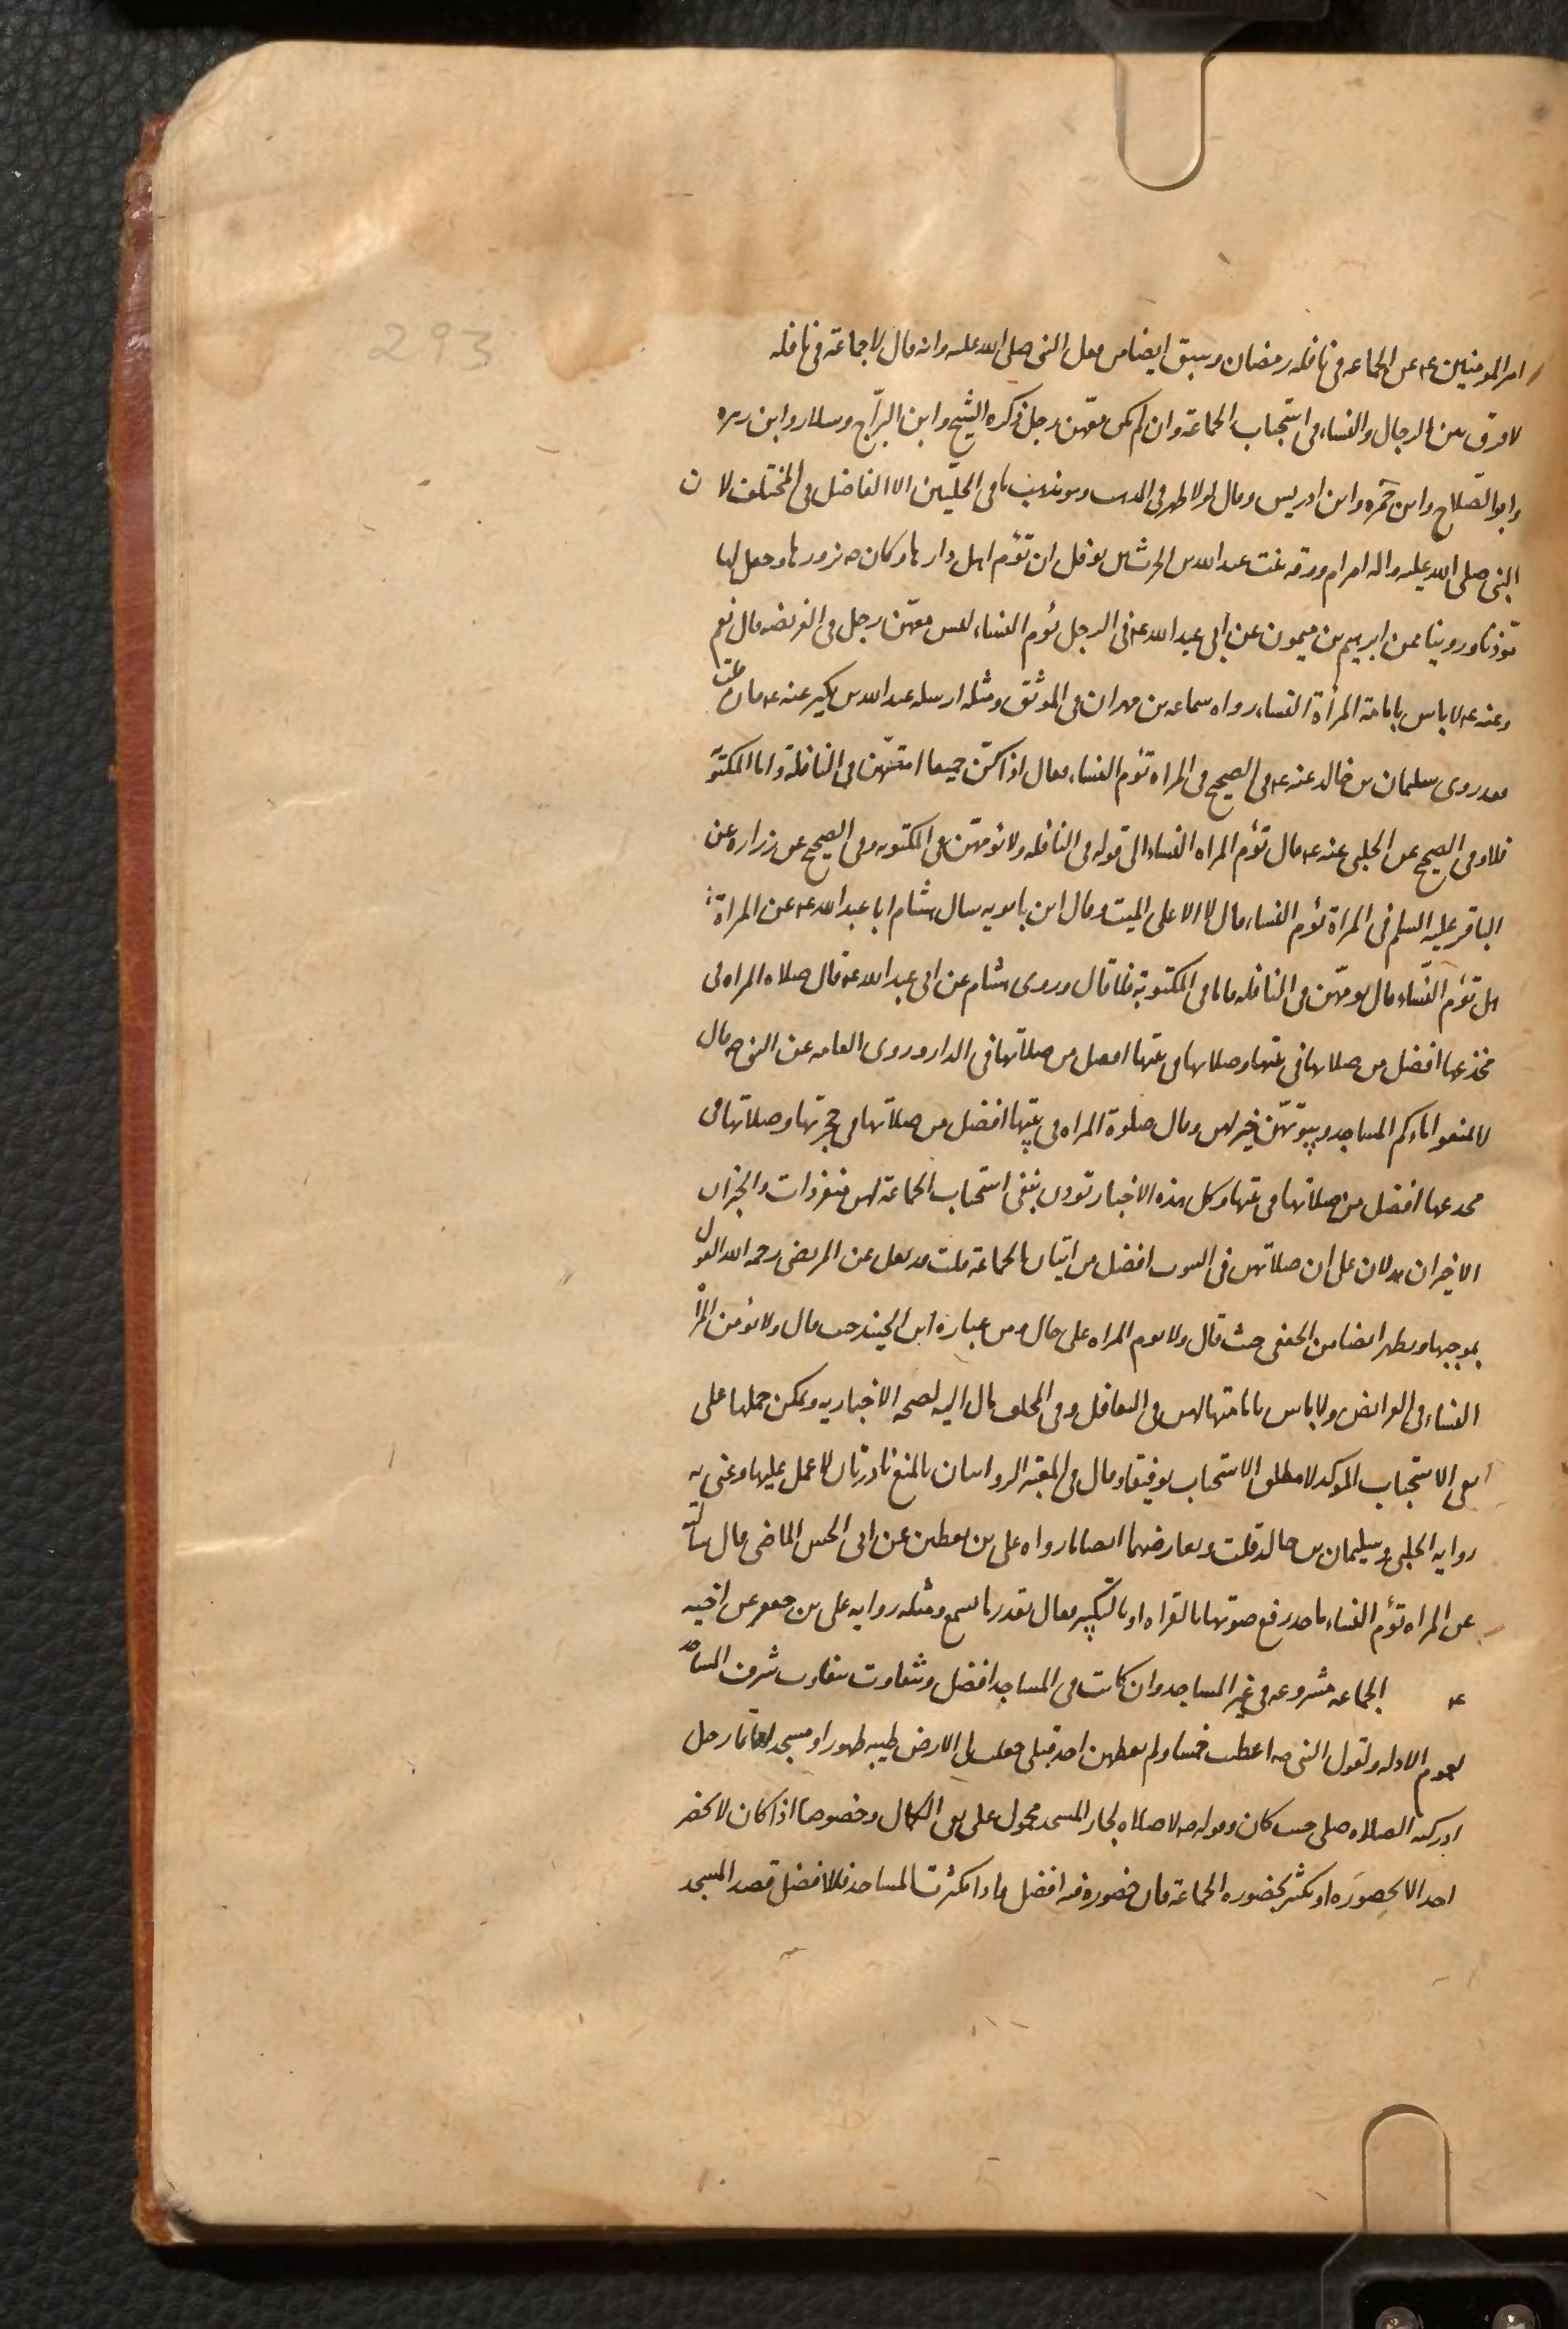 293
امير المومنين ع عن الجماعه فى نافله رمضان وسبق ايضا من فعل النبى صلى الله عليه وانه قال لا جماعة فى نافله
لا فرق بين الرجال والنساء فى استحباب الجماعة وان لم يكن معهن رجل ذكره الشيخ وابن البرّاج وسلار وابن زهره
وابو الصلاح وابن حمزه وابن ادريس وقال هو الاظهر فى المذهب وهو مذهب باقى الحلّيين الا الفاضل فى المختلف لان
النبى صلى الله عليه واله امر ام ورقه بنت عبد الله بن الحرث بن نوفل ان تؤم اهل دارها وكان ص يزورها وجعل لها
مؤذنا وروينا عن ابرهيم بن ميمون عن ابى عبد الله ع فى الرجل يؤم النساء ليس معهن رجل فى الفريضه قال نعم
وعنه ع لا باس بامامة المرأة النساء رواه سماعه بن مهران فى الموثق ومثله ارسله عبد الله بن بكير عنه ع فان قلت
فقد روى سليمان بن خالد عنه ع فى الصحيح فى المراه تؤم النساء فقال اذا كنّ جميعا امتهنّ فى النافلة واما المكتوبة
فلا وفى الصحيح عن الحلبى عنه ع قال تؤم المراه النساء الى قوله فى النافله ولا تؤمهن فى المكتوبه وفى الصحيح عن زراره عن
الباقر عليه السلم فى المراة تؤم النساء قال لا الا على الميت وقال ابن بابويه سال هشام ابا عبد الله ع عن المراة
هل تؤم النساء قال تؤمهن فى النافله فاما فى المكتوبة فلا قال وروى هشام عن ابى عبد الله ع قال صلاه المراه فى
مخدعها افضل من صلاتها فى بيتها وصلاتها فى بيتها افضل من صلاتها فى الدار وروى العامه عن النبى ص قال
لا تمنعوا اماءكم المساجد وبيوتهن خير لهن وقال صلوة المراه فى بيتها افضل من صلاتها فى حجرتها وصلاتها فى
مخدعها افضل من صلاتها فى بيتها وكل هذه الاخبار تؤذن بنفى استحباب الجماعة لهن منفردات والخبران
الاخيران يدلان على ان صلاتهن فى البيوت افضل من اتيان الجماعة قلت قد نقل عن المرتضى رحمه الله القول
بموجبها ويظهر ايضا من الجعفى حيث قال ولا تؤم المراه على حال ومن عباره ابن الجنيد حيث قال ولا تؤمن المرأة
النساء فى الفرائض ولا باس بامامتها لهن فى النوافل وفى المختلف مال اليه لصحه الاخبار به ويمكن حملها على
نفى الاستحباب الموكد لا مطلق الاستحباب توفيقا وقال فى المعتبر الروايتان بالمنع نادرتان لا عمل عليها وعنى به
روايه الحلبى وسليمان بن خالد قلت ويعارضهما ايضا ما رواه على بن يقطين عن ابى الحسن الماضى قال سالته
عن المراه تؤم النساء ما حد رفع صوتها بالقراه او بالتكبير فقال بقدر ما تسمع ومثله روايه على بن جعفر عن اخيه
ع الجماعه مشروعه فى غير المساجد وان كانت فى المساجد افضل وتتفاوت بتفاوت شرف المساجد
لعموم الادله ولقول النبى ص اعطيت خمسا ولم يعطهن احد قبلى جعلت لى الارض طيبه طهورا ومسجدا فايما رجل
ادركته الصلاه صلى حيث كان وقوله ص لا صلاه لجار المسجد محمول على نفى الكمال وخصوصا اذا كان لا يحضر
احد الا بحضوره او تكثر بحضوره الجماعة فان حضوره فيه افضل واذا كثرت المساجد فالافضل قصد المسجد